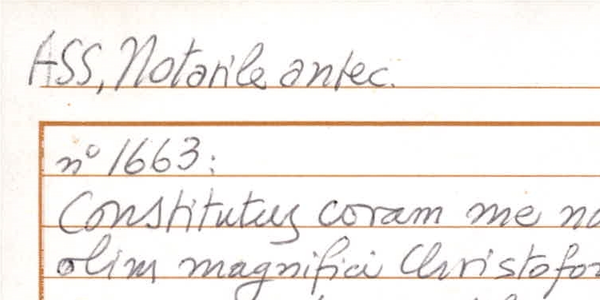 ASS, Notarile antec.
n° 1663:
Constitutus coram me no
olim magnifici Christofor